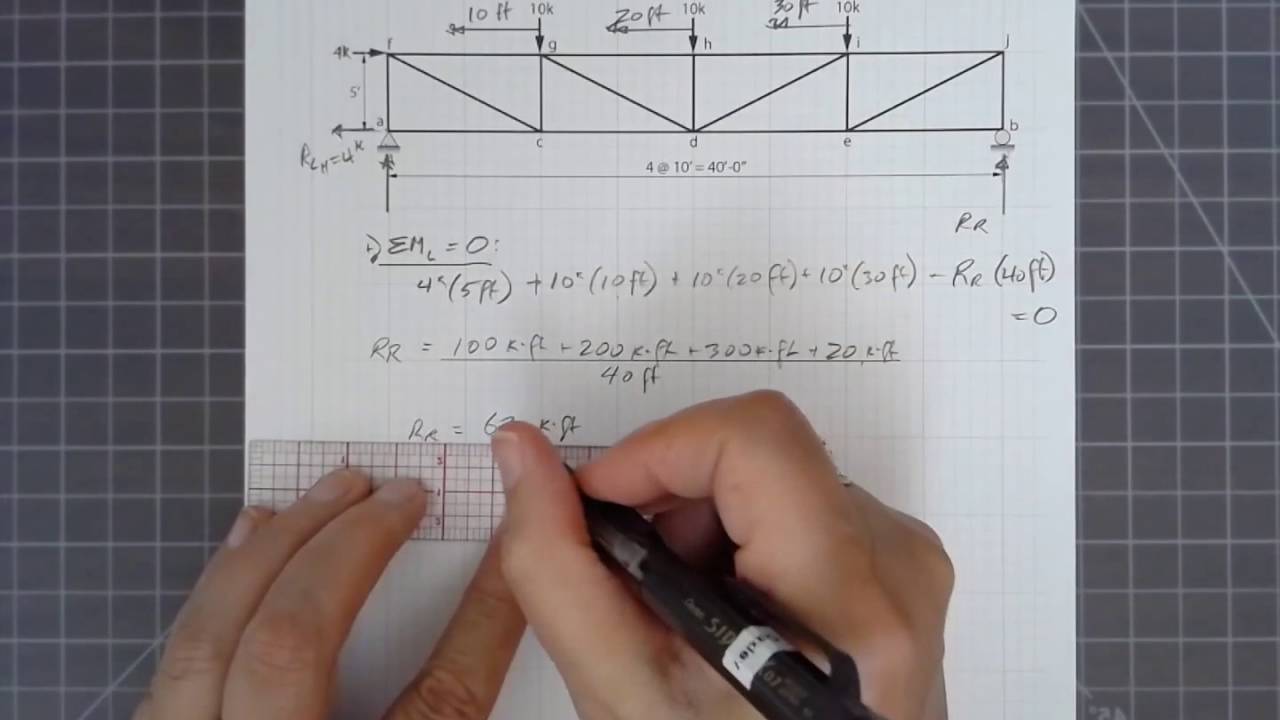 10 ft 10k 20 ft 10k 30 ft 10k
4k f g h i j
5'
a b
R_LH = 4ᴷ c d e
4 @ 10' = 40'-0"
R_R
+) ΣM_L = 0:
4ᴷ(5ft) + 10ᴷ(10ft) + 10ᴷ(20ft) + 10ᴷ(30ft) - R_R (40ft)
= 0
R_R = 100 k·ft + 200 k·ft + 300 k·ft + 20 k·ft
40 ft
R_R = k·ft